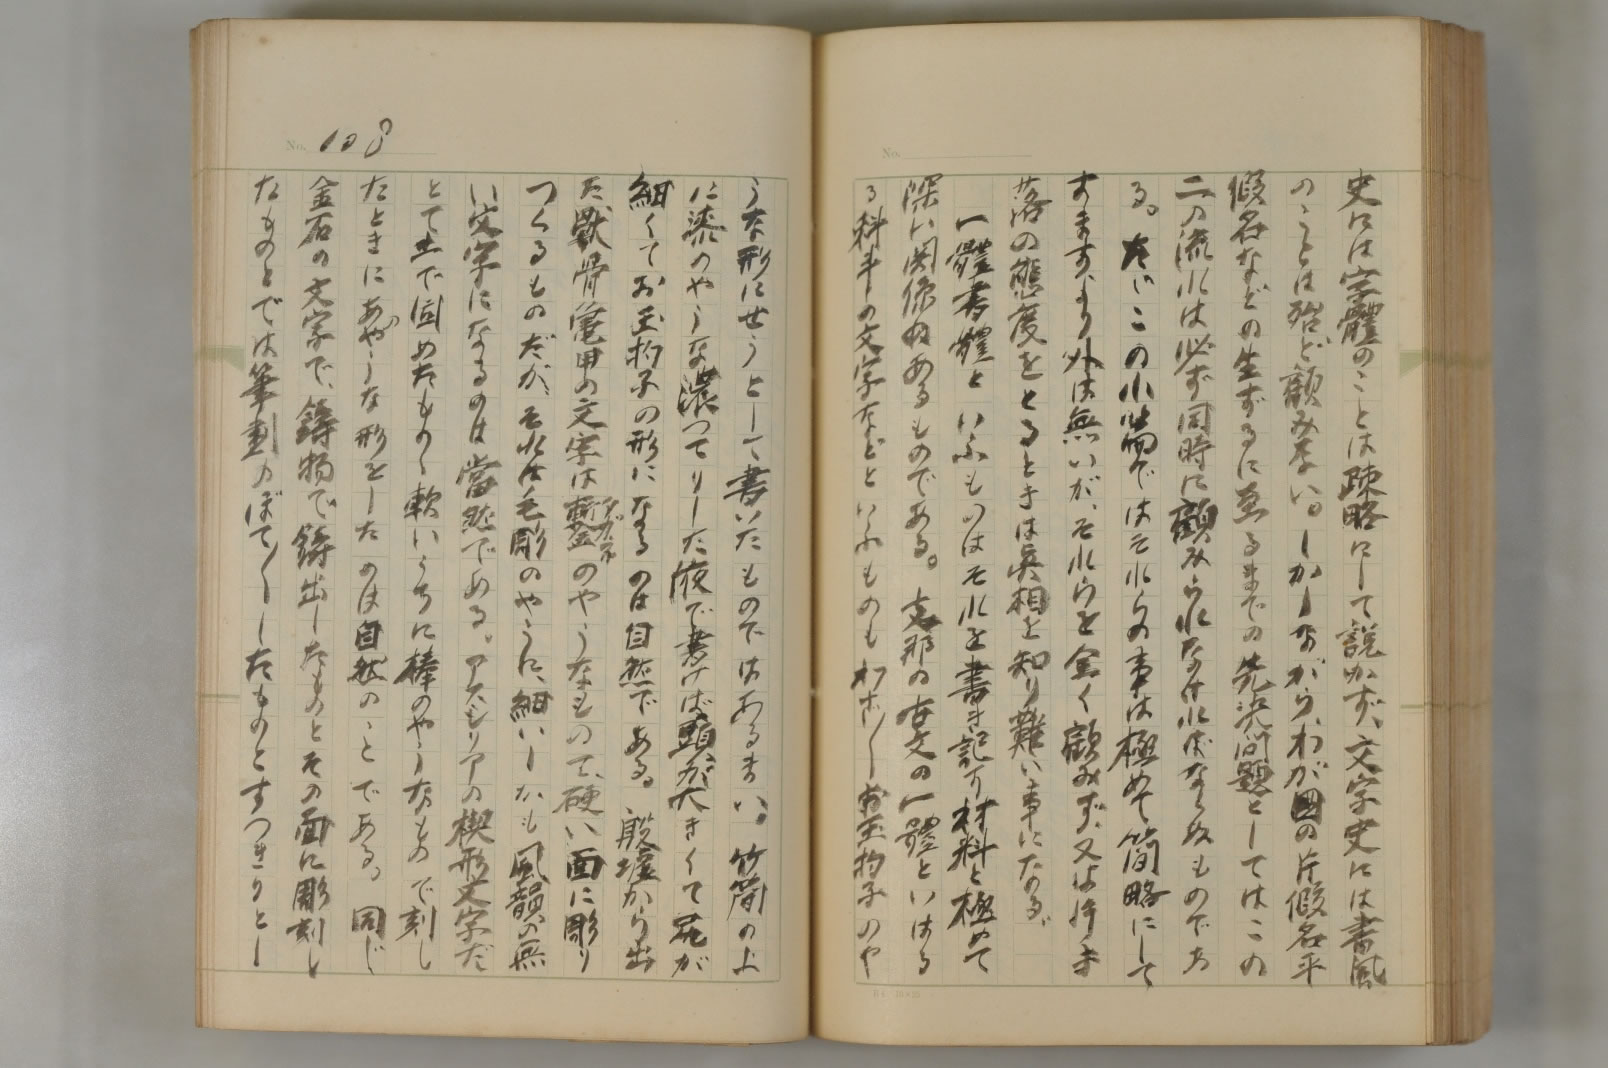 史には字體のことは疎略にして説かず、文字史には書風
のことは殆ど顧みない。しかしながら、わが国の片假名平
假名などの生ずるに至るまでの先決問題としてはこの
二の流れは必ず同時に顧みられなければならぬものであ
る。たゞこの小冊では それらの事は極めて簡略にして
おきますより外は無いが、それらを全く顧みず、又は
落の態度をとるときは眞相を知り難い事になる。
一體書體といふものはそれを書き記す材料と極めて
深い関係のあるものである。支那の古文の一體といはる
る科斗の文字などといふものもわざ〳〵お玉杓子のや
No. 108
うな形にせうとして書いたものではあるまい。竹簡の上
に漆のやうな濃つてりした液で書けば頭が大きくて尾が
細くてお玉杓子の形になるのは自然である。殷墟から出
た獸骨亀甲の文字は鏨のやうなもので、硬い面に彫り
タガネ
つくるものだが、それは毛彫のやうに、細いしかも風韻の無
い文字になるのは當然である。アスシリアの楔形文字だ
とて土で固めたものゝ軟いうちに棒のやうなもので刻し
たときにあのやうな形をしたのは自然のことである。同じ
金石の文字で、鋳物で鋳出したものとその面に彫刻し
たものとでは筆劃のぼて〳〵したものとすつきりとし
No.